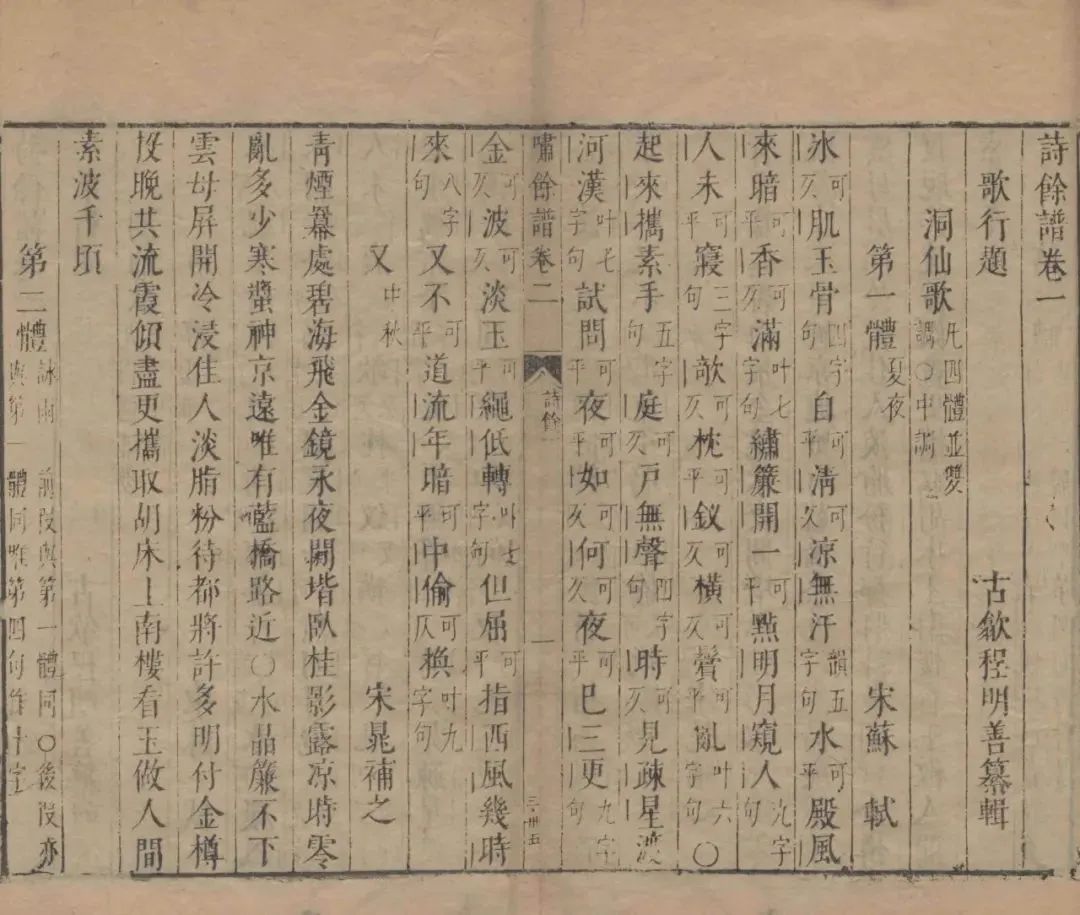 詩餘譜卷一
歌行題　古歙程明善纂輯
洞仙歌凡四體並雙調〇中調
第一體夏夜　宋蘇軾
氷可仄肌玉骨四字句自可平清可仄凉無汗韻五字句水可平殿風
來暗可平香滿叶七字句繡簾開一可平點明月窺人九字句
人未可平寢三字句欹可仄枕可平釵可仄橫鬢可平亂叶六字句〇
起來攜素手五字句庭可仄戶無聲四字句時可仄見疎星渡
河漢叶七字句試問可平夜可平如可仄何可仄夜可平已三更九字句
嘯餘譜卷二　詩餘一　一　三卅五
金可仄波可仄淡玉可平繩低轉叶七字句但屈可平指西風幾時
來八字句又不可平道流年暗可平中偷可仄換叶九字句
又中秋　宋晁補之
青煙冪處碧海飛金鏡永夜閒堦臥桂影露凉時零
亂多少寒螿神京遠唯有藍橋路近〇水晶簾不下
雲母屏開冷浸佳人淡脂粉待都將許多明付金樽
投曉共流霞傾盡更攜取胡床上南樓看玉做人間
素波千頃
第二體詠雨　前段與第一體同〇後段亦與第一體同唯第四句作十字